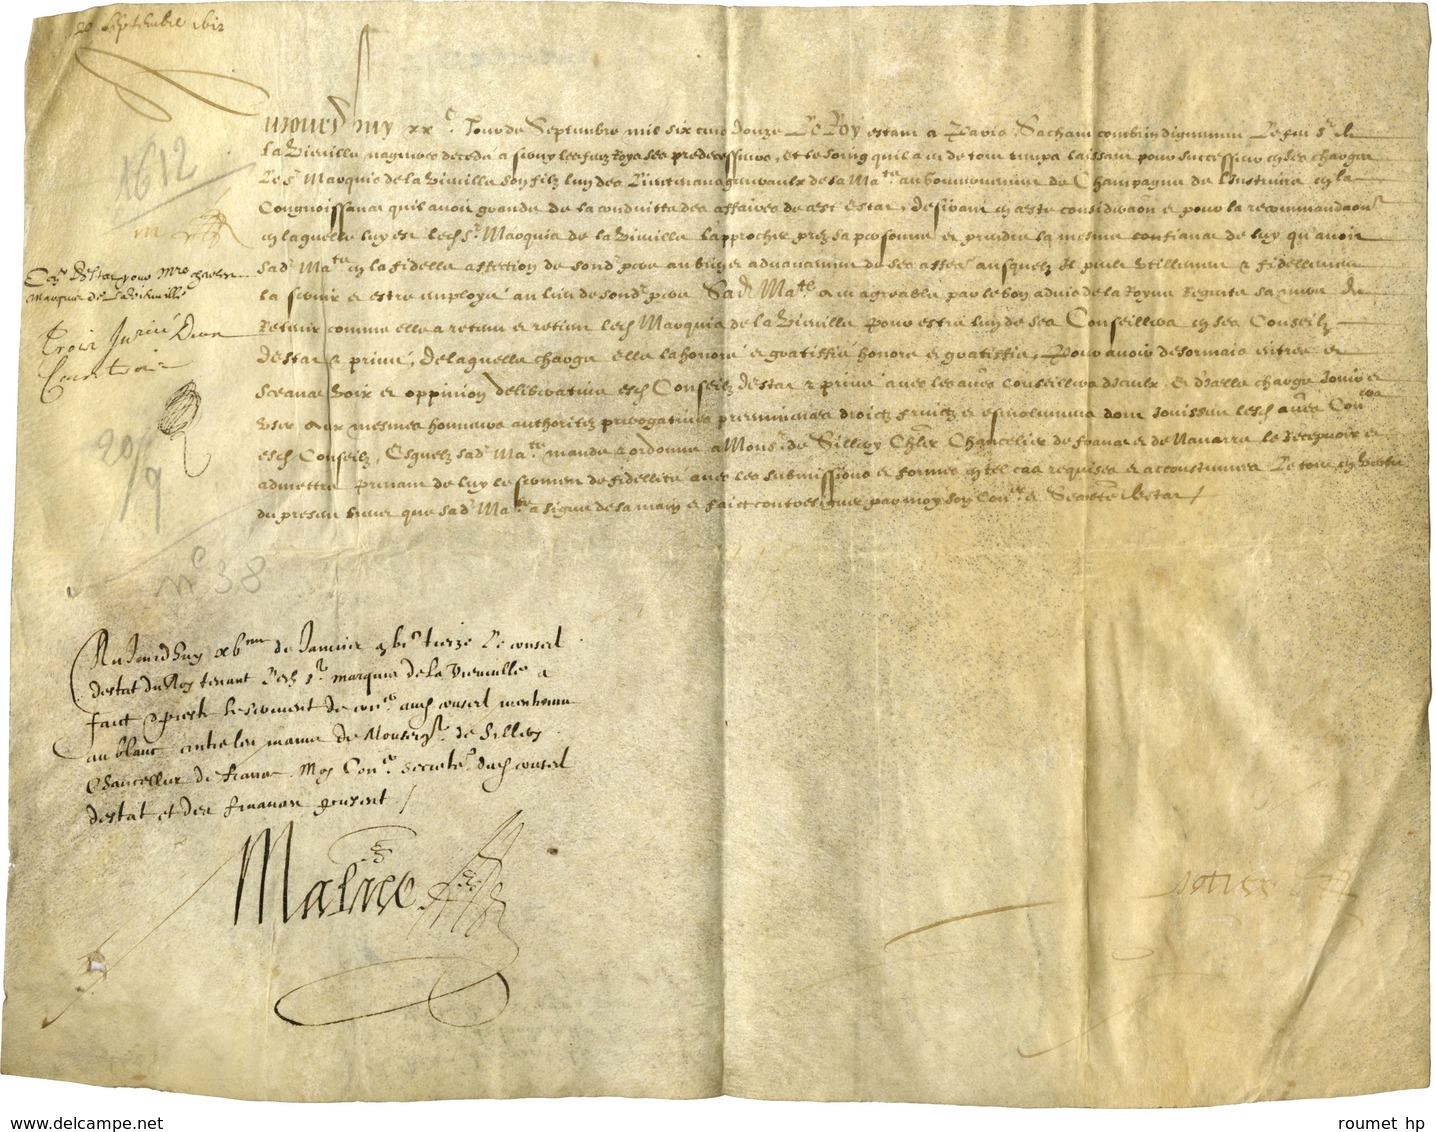 20 septembre 1612
Aujourd'huy xxe. Jour de Septembre mil six cens douze Le Roy estant a Paris, Sachant combien dignement Le feu Sr. de
La Vieuville nagueres decedé a servy les feuz Roys ses predecesseurs, et le soing qu'il a eu de tout temps laissant pour successeur en ses charges
Le Sr. Marquis de la Vieuville son filz l'un des Lieutenans generaulx de sa Mate. au gouvernement de Champagne de l'instruire en la
Congnoissance qu'il avoit grande de la conduitte des affaires de cest Estat, desirant en ceste consideraon et pour la recommandaon
en laquelle luy est led. Sr. Marquis de la Vieuville l'approcher prez sa personne et prendre la mesme confiance de luy qu'avoit
sad. Mate. en la fidelle affection de sond. pere au bien et advancement de ses affres. ausquelz Il peult utillement & fidellement
la servir et estre employé au lieu de sond. pere Sad. Mate. a eu agreable par le bon advis de la Royne Regente sa mere de
Retenir comme elle a retenu et retient led. Marquis de la Vieuville pour estre l'un de ses Conseillers en ses Conseilz
d'estat & privé, de laquelle charge elle l'a honoré et gratiffié honore et gratiffie, Pour avoir desormais entrée et
sceance voix et oppinion deliberative esd. Conseilz d'estat & privé avec les aues. conseillers d'iceulx, Et d'icelle charge Jouir et
user aux mesmes honneurs authoritez prerogatives preeminences droictz fruictz et esmolumens dont Jouissent lesd. aues. Coners
esd. Conseilz, Esquelz sad. Mate. mande & ordonne a Monsr. de Sillery Chler Chancelier de france et de Navarre le Recepvoir et
admettre prenant de luy le serment de fidellité avec les submissions et formes en tel cas requises et accoustumées Le tout en vertu
du present brevet que sad. Mate. a signé de sa main et faict contresigner par moy son Coner. et Secretre. d'Estat /
1612
Coner. d'Estat pour Mre charles
Marquis de la Vieuville
20/9
n° 38
Aujourd'huy xvme de Janvier mil vic treize Le conseil
destat du Roy tenant Led. Sr. marquis de la Vieuville a
faict et presté le serment de coner. aud. conseil mentionné
au blanc entre les mains de Monseigr. de Sillery
Chancellier de france. Moy Coner. secretre. dud. conseil
destat et des finances present /
Malier
roumet hp